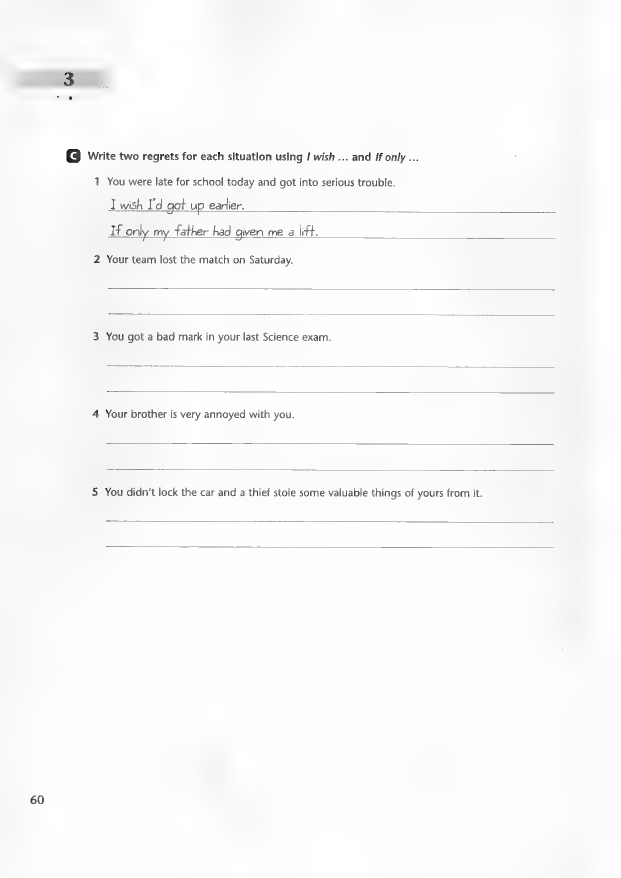 3
C Write two regrets for each situation using I wish ... and If only ...
1 You were late for school today and got into serious trouble.
I wish I'd got up earlier.
If only my father had given me a lift.
2 Your team lost the match on Saturday.
3 You got a bad mark in your last Science exam.
4 Your brother is very annoyed with you.
5 You didn't lock the car and a thief stole some valuable things of yours from it.
60